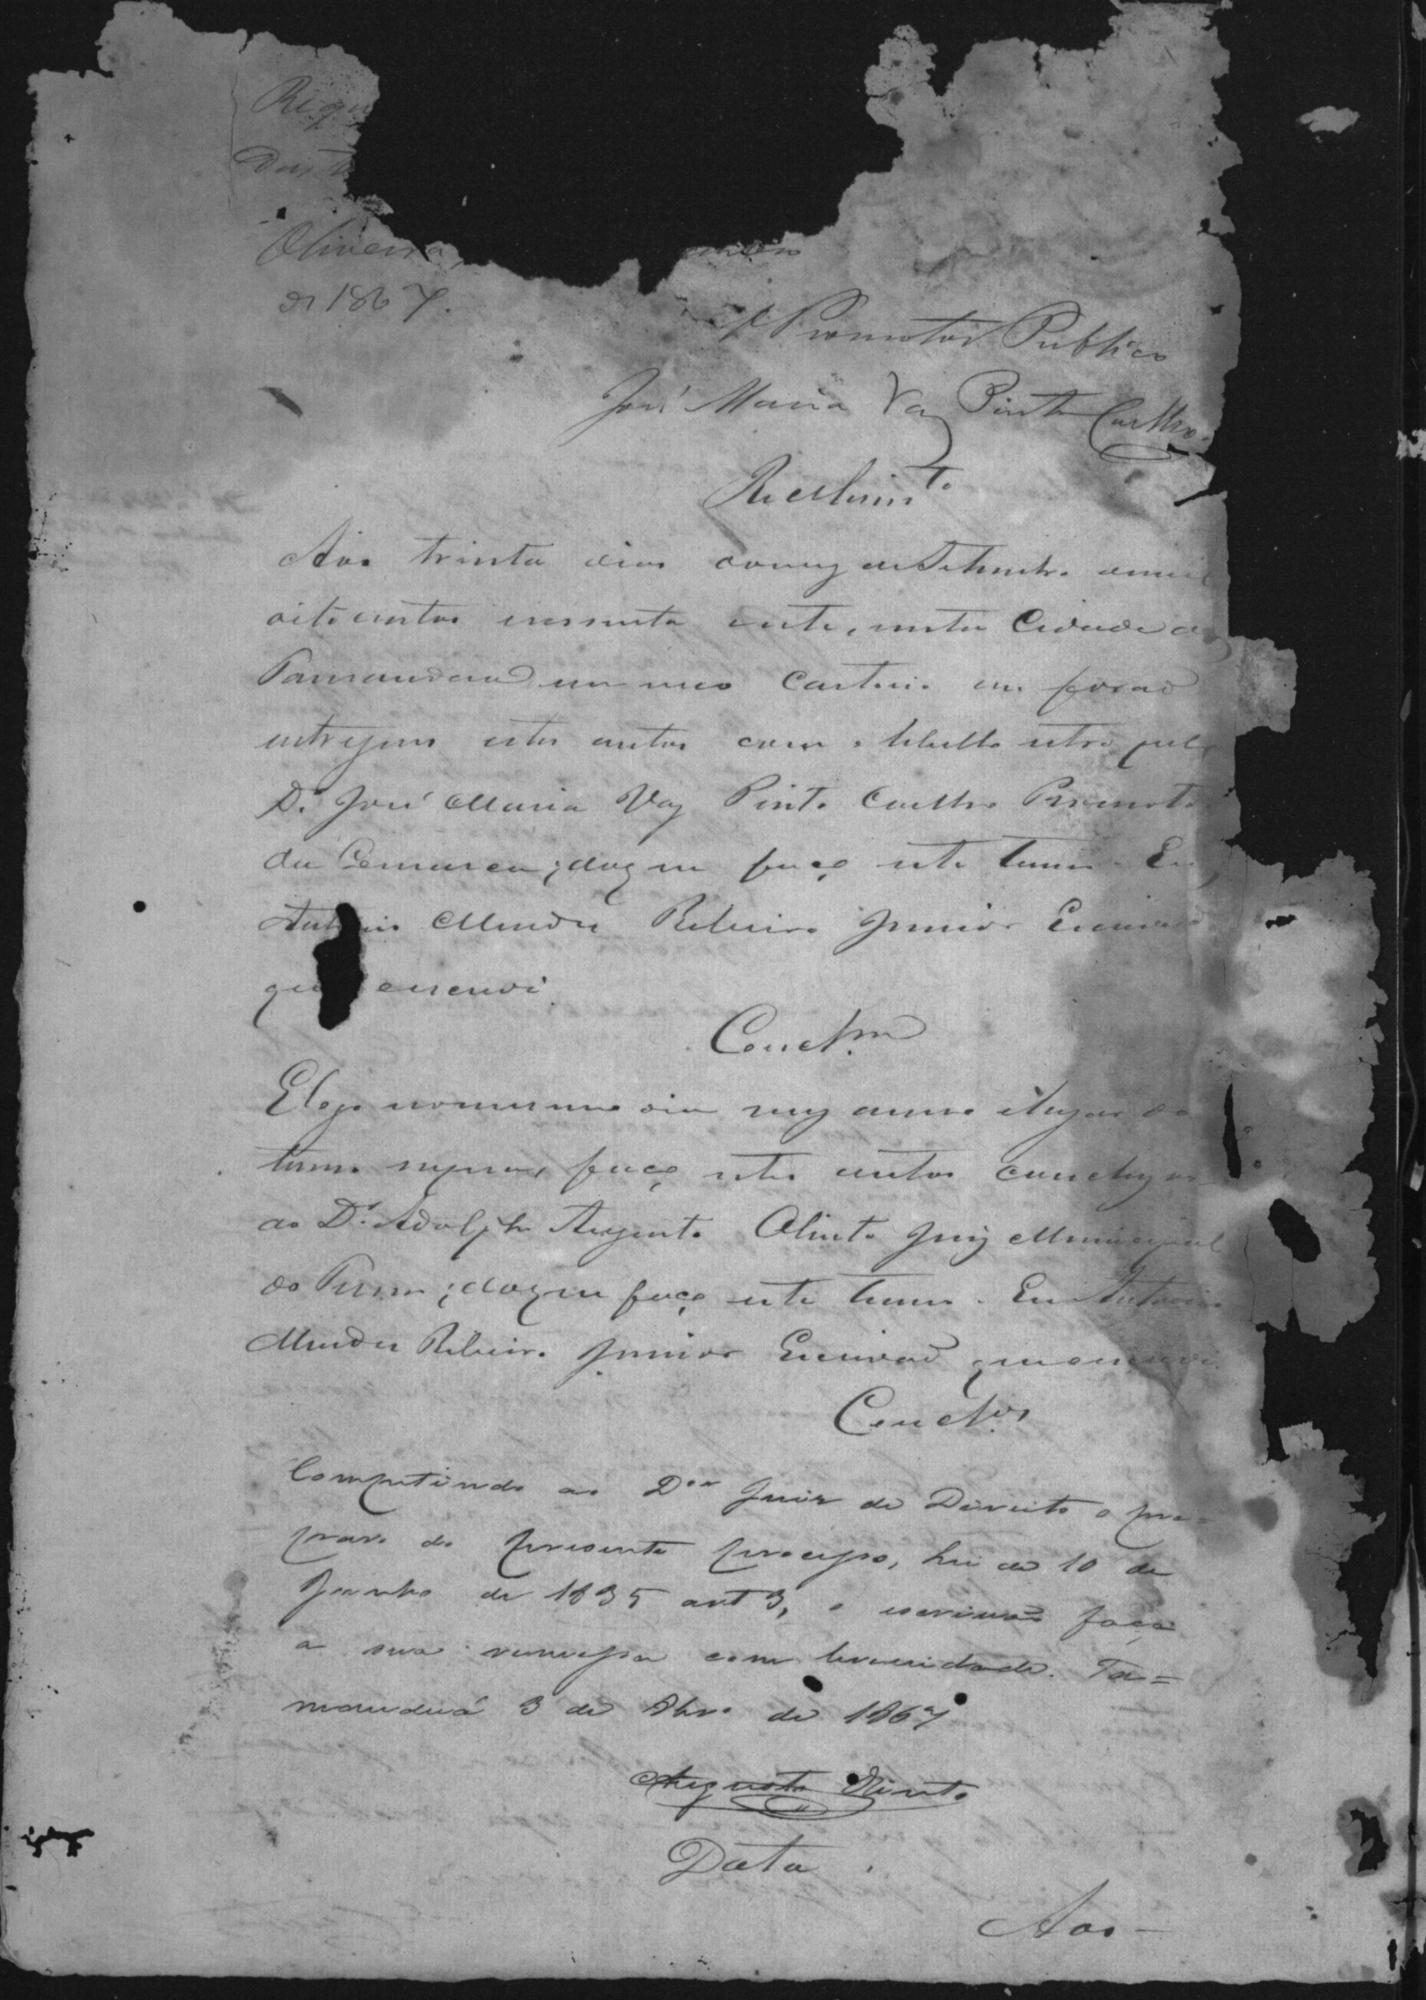 Requ
Oliveira,
de 1867.
O Promotor Publico
José Maria Vaz Pinto Coelho.
Recebim.to
Aos trinta dias do mez de Setembro de mil
oito centos secenta e sete, nesta Cidade de
Tamanduá em meo Cartorio me forao
entregues estes autos com o libello retro pelo
Dr. José Maria Vaz Pinto Coelho Promotor
da Comarca; do q̃ faço este termo. Eu
Antonio Mendes Ribeiro Junior Escrivão
que escrevi.
Concl.am
E logo no mesmo dia mez anno e lugar do
termo supra, faço estes autos conclusos
ao Dr. Adolpho Augusto Olinto Juiz Municipal
do Termo; do q̃ faço este termo. Eu Antonio
Mendes Ribeiro Junior Escrivão que escrevi.
Concl.os
Competindo ao D.or Juiz de Direito o pre-
paro do presente processo, lei de 10 de
Junho de 1835 art 3, o escrivão faça
a sua remessa com brevidade. Ta=
manduá 3 de Obr.o de 1867
Augusto Olinto
Data.
Aos